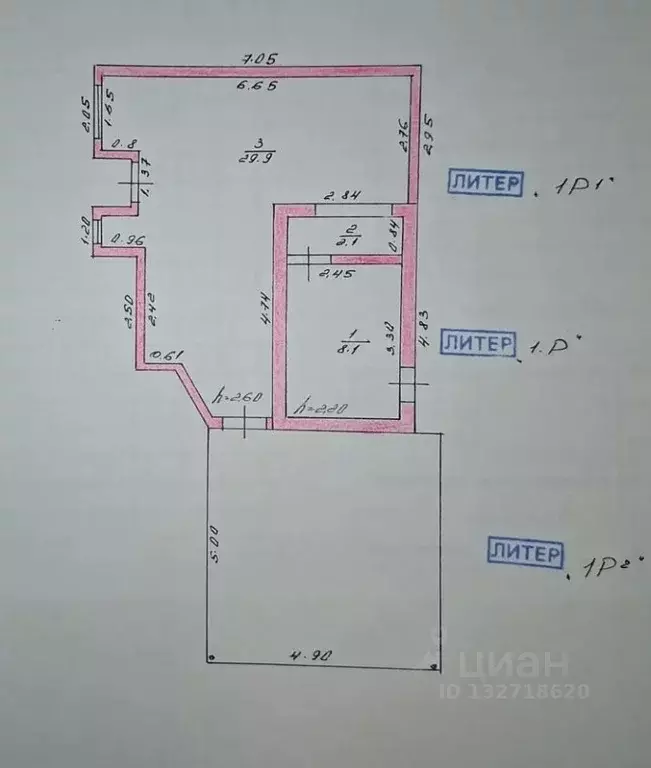 7.05
6.65
2.05
1.65
0.8
1.37
3
29.9
2.76
2.95
ЛИТЕР
"1Р1"
2.84
1.20
0.96
2
2.1
0.84
2.45
2.50
2.42
4.74
1
8.1
3.30
4.83
ЛИТЕР
"1.Р"
0.61
h=2.60
h=2.20
5.00
ЛИТЕР
"1Р2"
4.90
циан
ID 132718620